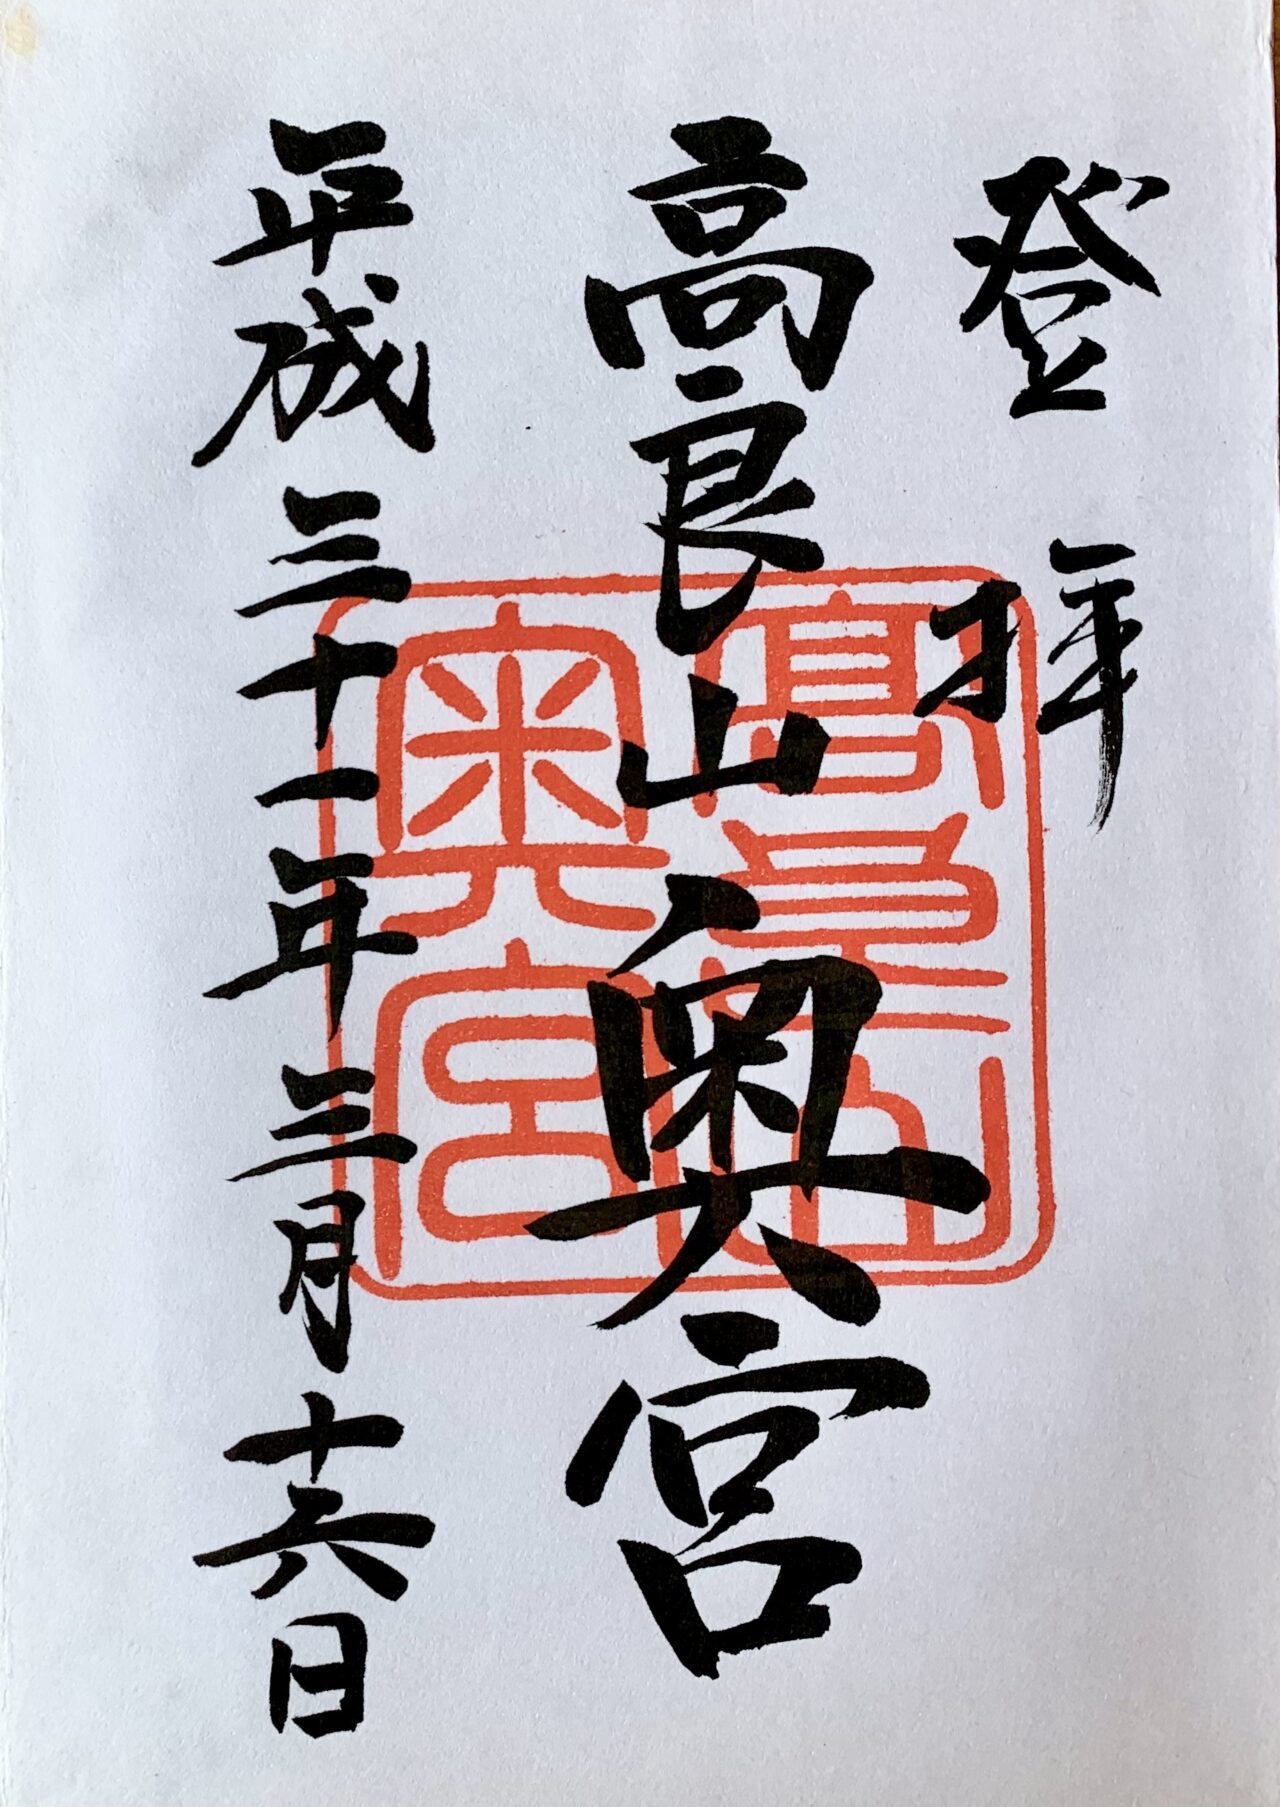 登拝
高良山奥宮
平成三十一年三月十六日
高良山
奥宮